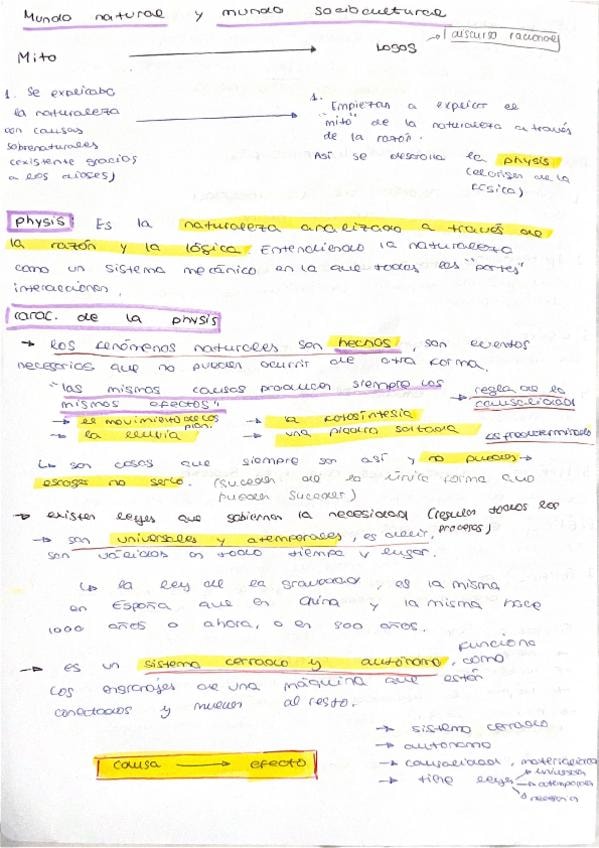 Mundo natural y mundo sociocultural
Mito → LOGOS → discurso racional
1. Se explicaba
la naturaleza
con causas
sobrenaturales
(existente gracias
a los dioses)
1. Empiezan a explicar el
"mito" de la naturaleza a través
de la razón.
Así se desarrolla la physis
(origen de la
física)
physis Es la naturaleza analizada a través de
la razón y la lógica. Entendiendo la naturaleza
como un sistema mecánico en la que todas las "partes"
interaccionan.
carac. de la physis
→ los fenómenos naturales son hechos, son eventos
necesarios que no pueden ocurrir de otra forma.
"las mismas causas producen siempre los
mismos efectos"
→ regla de la
causalidad
→ el movimiento de los
plan.
→ la fotosíntesis
→ la lluvia
→ una piedra soltada
es predeterminado
↳ son cosas que siempre son así y no pueden →
escoger no serlo. (suceden de la única forma que
pueden suceder)
→ existen leyes que gobiernan la necesidad (regulan todos los
procesos)
→ son universales y atemporales, es decir,
son válidas en todo tiempo y lugar.
↳ la ley de la gravedad, es la misma
en España que en China y la misma hace
1000 años o ahora, o en 800 años.
→ es un sistema cerrado y autónomo, funciona como
los engranajes de una máquina que están
conectados y mueven al resto.
causa → efecto
→ sistema cerrado
→ autónomo
→ causalidad,
→ tiene leyes
→ universal
→ atemporales
→ necesaria